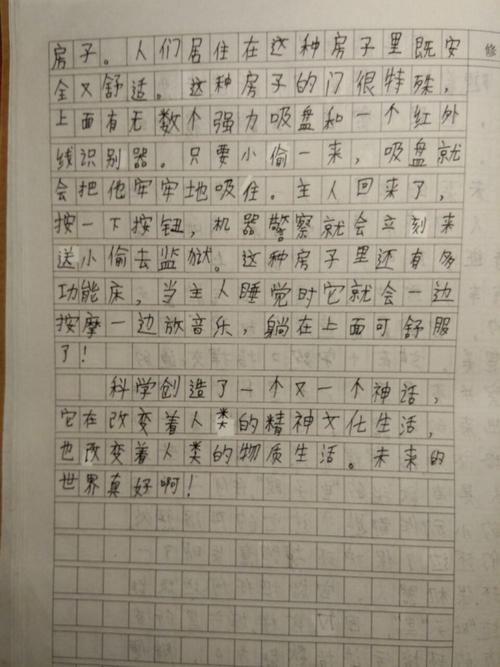 房子。人们居住在这种房子里既安
全又舒适。这种房子的门很特殊，
上面有无数个强力吸盘和一个红外
线识别器。只要小偷一来，吸盘就
会把他牢牢地吸住。主人回来了，
按一下按钮，机器警察就会立刻来
送小偷去监狱。这种房子里还有多
功能床，当主人睡觉时它就会一边
按摩一边放音乐，躺在上面可舒服
了！
科学创造了一个又一个神话，
它在改变着人类的精神文化生活，
也改变着人类的物质生活。未来的
世界真好啊！
修